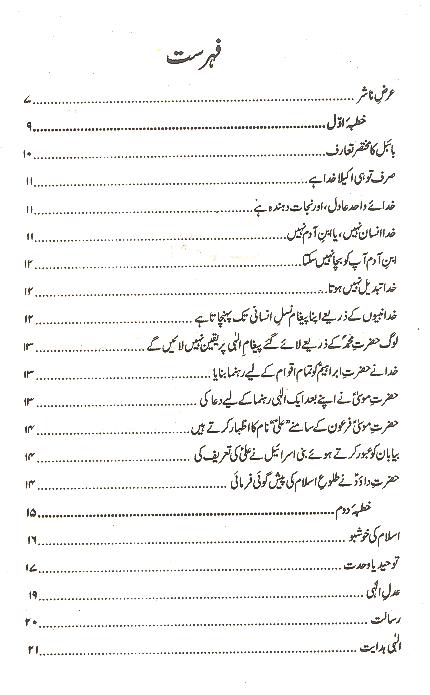 فہرست
عرضِ ناشر ۷
خطبۂ اوّل ۹
بائبل کا مختصر تعارف ۱۰
صرف تو ہی اکیلا خدا ہے ۱۱
خدائے واحد عادل، اور نجات دہندہ ہے ۱۱
خدا انسان نہیں، یا ابنِ آدم نہیں ۱۱
ابنِ آدم آپ کو بچا نہیں سکتا ۱۲
خدا تبدیل نہیں ہوتا ۱۲
خدا نبیوں کے ذریعے اپنا پیغام نسلِ انسانی تک پہنچاتا ہے ۱۲
لوگ حضرت محمدؐ کے ذریعے لائے گئے پیغامِ الٰہی پر یقین نہیں لائیں گے ۱۳
خدا نے حضرت ابراہیمؑ کو تمام اقوام کے لیے رہنما بنایا ۱۳
حضرت موسیٰؑ نے اپنے بعد ایک الٰہی رہنما کے لیے دعا کی ۱۳
حضرت موسیٰؑ فرعون کے سامنے ”علی“ نام کا اظہار کرتے ہیں ۱۴
بیابان کو عبور کرتے ہوئے بنی اسرائیل نے علیؑ کی تعریف کی ۱۴
حضرت داؤدؑ نے طلوعِ اسلام کی پیش گوئی فرمائی ۱۴
خطبۂ دوم ۱۵
اسلام کی خوشبو ۱۶
توحید یا وحدت ۱۷
عدلِ الٰہی ۱۹
رسالت ۲۰
الٰہی ہدایت ۲۱